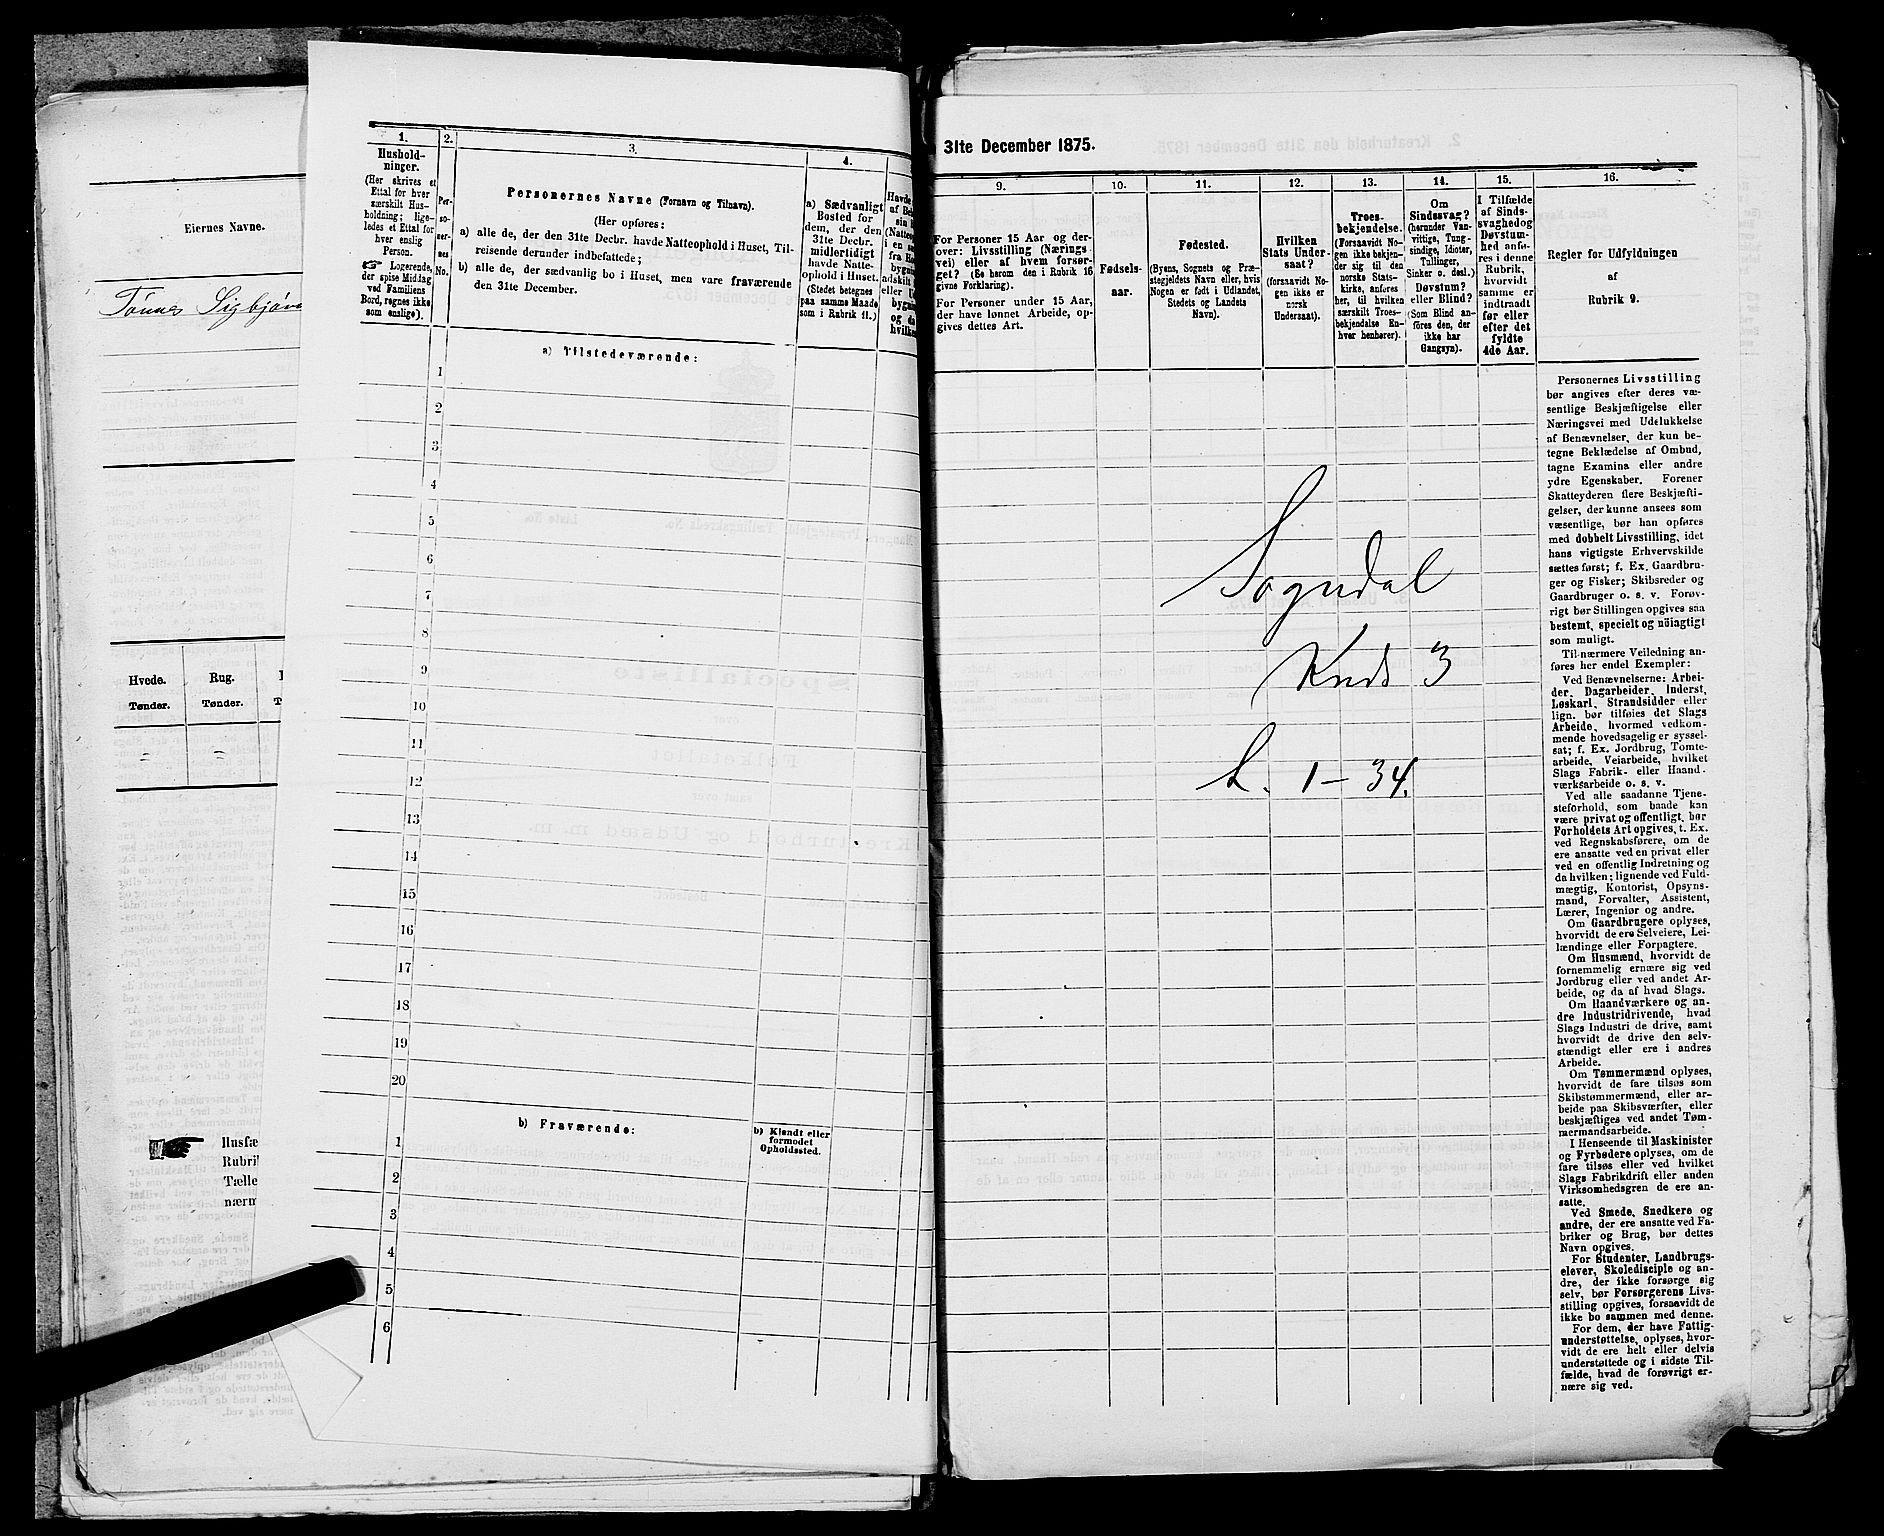 Eiernes Navne.
Tønnes Sigbjørn
Hvede.
Rug.
Tønder.
Tønder.
Husfæ
Rubrik
Tælle
nærm
1.
Hushold-
ninger.
(Her skrives et
Ettal for hver
særskilt Hus-
holdning; lige-
ledes et Ettal for
hver enslig
Person.
Logerende,
der spise Middag
ved Familiens
Bord, regnes ikke
som enslige).
2.
Per-
so-
ner-
nes
No.
3.
Personernes Navne (Fornavn og Tilnavn).
(Her opføres:
a) alle de, der den 31te Decbr. havde Natteophold i Huset, Til-
reisende derunder indbefattede;
b) alle de, der sædvanlig bo i Huset, men vare fraværende
den 31te December.
4.
a) Sædvanligt
Bosted for
dem, der den
31te Decbr.
midlertidigt
havde Natte-
ophold i Huset.
(Stedet betegnes
paa samme Maade
som i Rubrik 11.)
a) Tilstedeværende:
1
2
3
4
5
6
7
8
9
10
11
12
13
14
15
16
17
18
19
20
b) Fraværende:
b) Kjendt eller
formodet
Opholdssted.
1
2
3
4
5
6
31te December 1875.
9.
For Personer 15 Aar og der-
over: Livsstilling (Nærings
vei) eller af hvem forsør-
get? (Se herom den i Rubrik 16
givne Forklaring).
For Personer under 15 Aar,
der have lønnet Arbeide, op-
gives dettes Art.
10.
Fødsels-
aar.
11.
Fødested.
(Byens, Sognets og Præ-
stegjeldets Navn eller, hvis
Nogen er født i Udlandet,
Stedets og Landets
Navn).
12.
Hvilken
Stats Under-
saat?
(forsaavidt No-
gen ikke er
norsk
Undersaat).
13.
Troes-
bekjendelse.
(Forsaavidt No-
gen ikke bekjen-
der sig til den
norske Stats-
kirke, anføres
her, til hvilken
særskilt Troes-
bekjendelse En-
hver henhører).
14.
Om
Sindssvag?
(herunder Van-
vittige, Tung-
sindige, Idioter,
Tullinger,
Sinker o. desl.)
Døvstum?
eller Blind?
(Som Blind an-
føres den, der
ikke har
Gangsyn).
15.
I Tilfælde
af Sinds-
svaghed og
Døvstum-
hed anfø-
res i denne
Rubrik,
hvorvidt
samme er
indtraadt
før eller
efter det
fyldte
4de Aar.
16.
Regler for Udfyldningen
af
Rubrik 9.
Sogndal
Kreds 3
L. 1-34.
Personernes Livsstilling
bør angives efter deres væ-
sentlige Beskjæftigelse eller
Næringsvei med Udelukkelse
af Benævnelser, der kun be-
tegne Beklædelse af Ombud,
tagne Examina eller andre
ydre Egenskaber. Forener
Skatteyderen flere Beskjæfti-
gelser, der kunne ansees som
væsentlige, bør han opføres
med dobbelt Livsstilling, idet
hans vigtigste Erhvervskilde
sættes først; f. Ex. Gaardbru-
ger og Fisker; Skibsreder og
Gaardbruger o. s. v. Forøv-
rigt bør Stillingen opgives saa
bestemt, specielt og nöiagtigt
som muligt.
Til nærmere Veiledning an-
føres her endel Exempler:
Ved Benævnelserne: Arbei-
der, Dagarbeider, Inderst,
Løskarl, Strandsidder eller
lign. bør tilføies det Slags
Arbeide, hvormed vedkom-
mende hovedsagelig er syssel-
sat; f. Ex. Jordbrug, Tomte-
arbeide, Veiarbeide, hvilket
Slags Fabrik- eller Haand-
værksarbeide o. s. v.
Ved alle saadanne Tjene-
steforhold, som baade kan
være privat og offentligt, bør
Forholdets Art opgives, t. Ex.
ved Regnskabsførere, om de
ere ansatte ved en privat eller
ved en offentlig Indretning og
da hvilken; lignende ved Fuld-
mægtig, Kontorist, Opsyns-
mand, Forvalter, Assistent,
Lærer, Ingeniør og andre.
Om Gaardbrugere oplyses,
hvorvidt de ere Selveiere, Lei-
lændinge eller Forpagtere.
Om Husmænd, hvorvidt de
fornemmelig ernære sig ved
Jordbrug eller ved andet Ar-
beide, og da af hvad Slags.
Om Haandværkere og an-
dre Industridrivende, hvad
Slags Industri de drive, samt
hvorvidt de drive den selv-
stændigt eller ere i andres
Arbeide.
Om Tømmermænd oplyses,
hvorvidt de fare tilsøs som
Skibstømmermænd, eller ar-
beide paa Skibsværfter, eller
beskjæftiges ved andet Tøm-
mermandsarbeide.
I Henseende til Maskinister
og Fyrbødere oplyses, om de
fare tilsøs eller ved hvilket
Slags Fabrikdrift eller anden
Virksomhedsgren de ere an-
satte.
Ved Smede, Snedkere og
andre, der ere ansatte ved Fa-
briker og Brug, bør dettes
Navn opgives.
For Studenter, Landbrugs-
elever, Skoledisciple og an-
dre, der ikke forsørge sig
selv, bør Forsørgerens Livs-
stilling opgives, forsaavidt de
ikke bo sammen med denne.
For dem, der have Fattig-
understøttelse, oplyses, hvor-
vidt de ere helt eller delvis
understøttede og i sidste Til-
fælde, hvad de forøvrigt er-
nære sig ved.